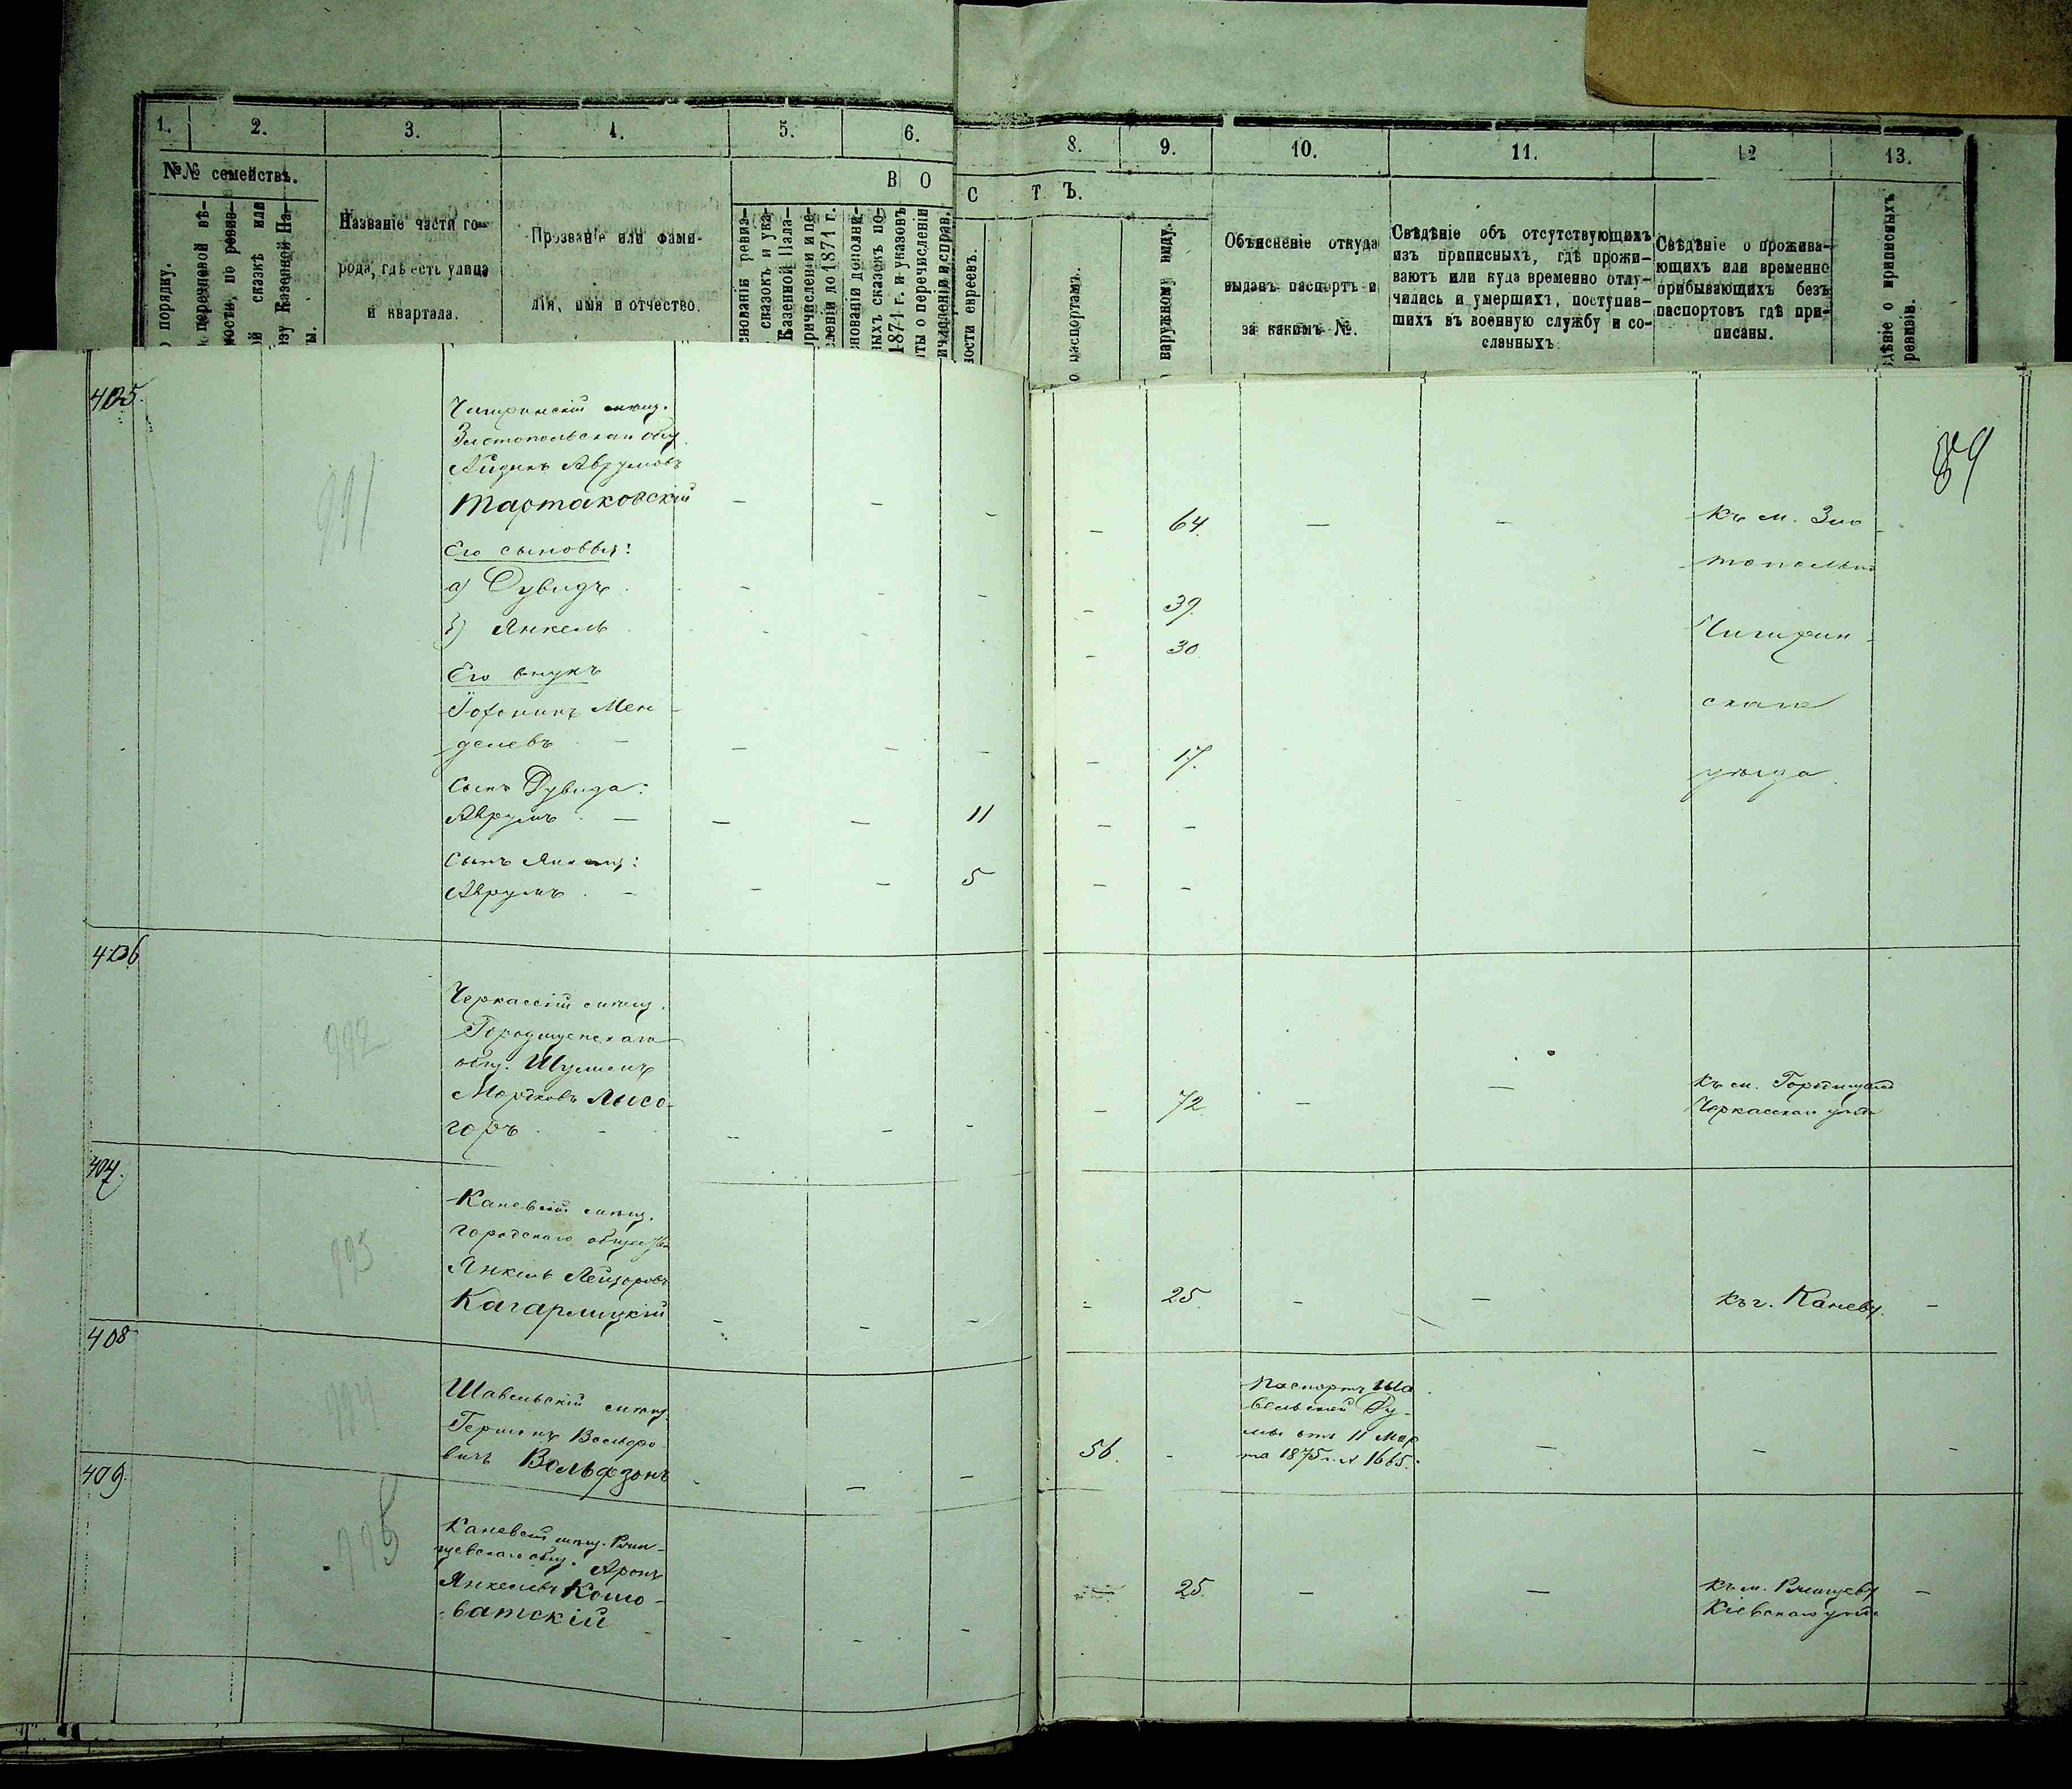 1. 2. 3. 4. 5. 6. 8. 9. 10. 11. 12 13.
№№ семействъ.
В О С Т Ъ.
порядку.
перечневой вѣ-
мости, по ревиз-
ой сказкѣ или
азу Казенной Па-
ты.
Названіе части го-
рода, гдѣ есть улица
и квартала.
Прозваніе или фами-
лія, имя и отчество.
снованіе ревиз-
сказокъ и ука-
Казенной Пала-
причисленіи и пе-
сленіи до 1871 г.
снованіи дополни-
ныхъ сказокъ по-
1871 г. и указовъ
ты о перечисленіи
ности евреевъ.
о паспортамъ.
наружному виду.
Объясненіе откуда
выданъ паспортъ и
за какимъ №.
Свѣдѣніе объ отсутствующихъ
изъ приписныхъ, гдѣ прожи-
ваютъ или куда временно отлу-
чились и умершихъ, поступив-
шихъ въ военную службу и со-
сланныхъ
Свѣдѣніе о прожива-
ющихъ или временно
прибывающихъ безъ
паспортовъ гдѣ при-
писаны.
дѣніе о приписныхъ
ревизіи.
84
405.
991
Чигиринскій мѣщ.
Златопольскаго общ.
Аврумовъ
Тартаковскій — — — — 64. — —
Къ м. Зла-
тополью
Чигирин-
скаго
уѣзда.
Его сыновья:
а) Дувидъ - - - - 39.
б) Янкель - - - - 30.
Его внукъ
Мен-
делевъ — — — — — 17.
Сынъ Дувида:
Аврумъ — — — 11 — —
Сынъ Янкеля:
Аврумъ - — — 5 — —
406
992
Черкасскій мѣщ.
Городищенскаго
общ. Шулимъ
Мордковъ Лысо-
горъ - - - - - 72. — —
Къ м. Городищамъ
Черкасскаго уѣзда
407.
993
Каневскій мѣщ.
городскаго общества
Янкель Лейзоровъ
Кагарлицкій - - - - 25. - — Къ г. Каневу. —
408
994
Шавельскій мѣщ.
Гершонъ Вольфо-
вичъ Вольфзонъ - — — 56. -
Паспортъ Ша-
вельской Ду-
мы отъ 11 Мар-
та 1875 г. № 1665.
— — -
409
995
Каневскій мѣщ. Ржи-
щевскаго общ. Аронъ
Янкелевъ Кошо-
ватскій - - - - 25. — —
Къ м. Ржищеву
Кіевскаго уѣзда
—